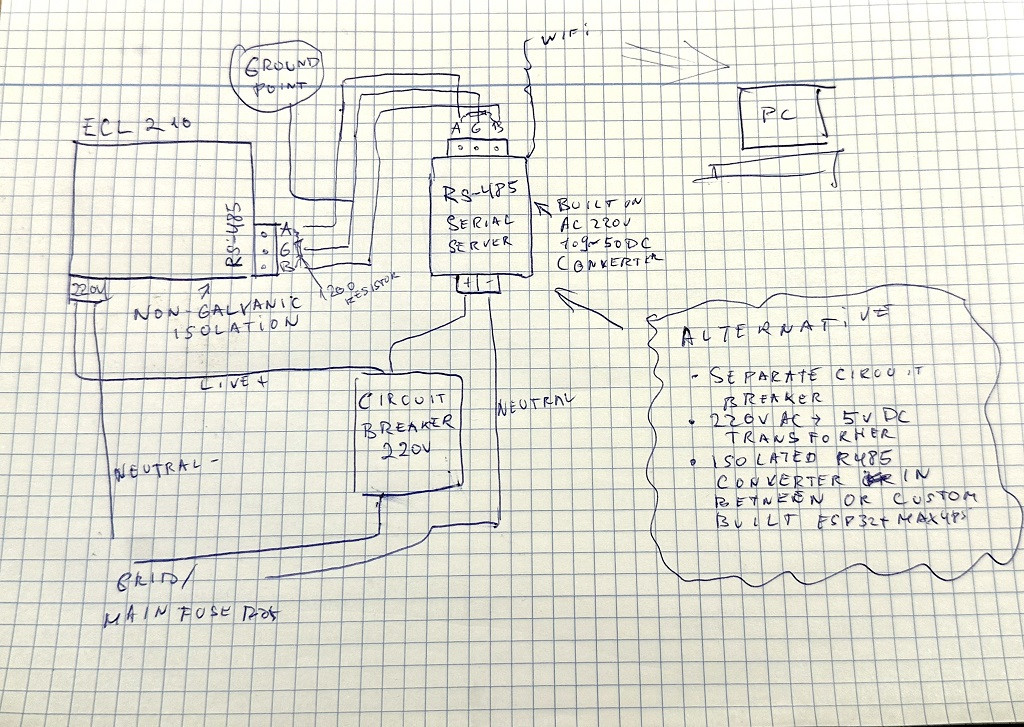 WIFI
GROUND
POINT
PC
ECL 210
A G B
RS-485
SERIAL
SERVER
BUILT ON
AC 220V
DC
CONVERTER
RS-485
A
G
B
RESISTOR
220V
NON-GALVANIC
ISOLATION
LIVE +
CIRCUIT
BREAKER
220V
+ -
NEUTRAL
NEUTRAL -
GRID/
MAIN FUSE
ALTERNATIVE
- SEPARATE CIRCUIT
BREAKER
• 220V AC → 5V DC
TRANSFORMER
• ISOLATED R485
CONVERTER IN
BETWEEN OR CUSTOM
BUILT ESP32+ MAX485